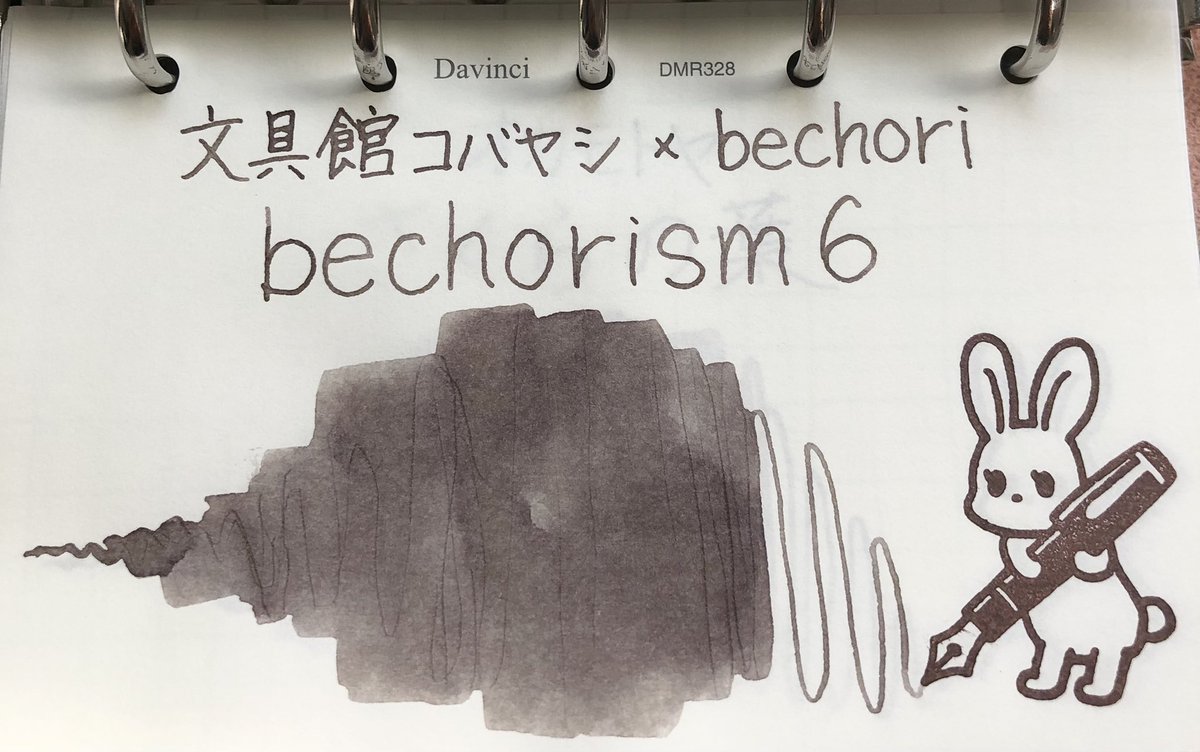 Davinci DMR328
文具館コバヤシ × bechori
bechorism 6